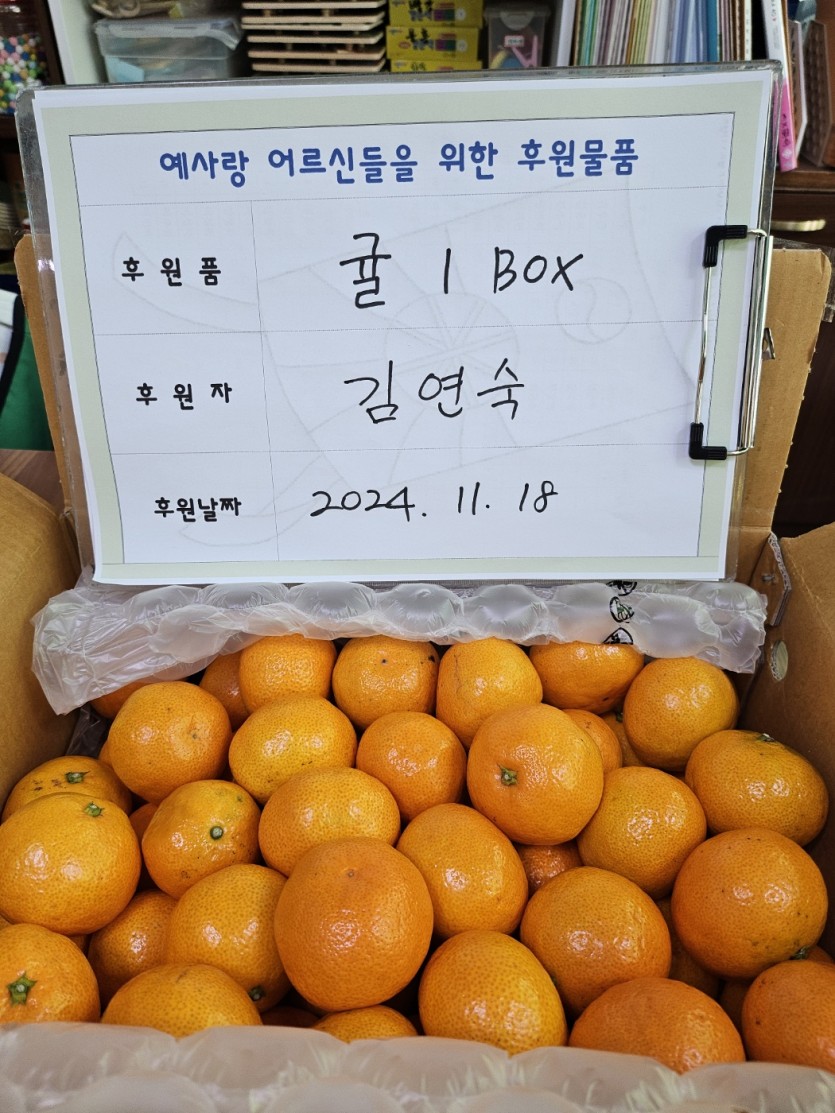 예사랑 어르신들을 위한 후원물품
후 원 품 귤 1 BOX
후 원 자 김연숙
후원날짜 2024. 11. 18